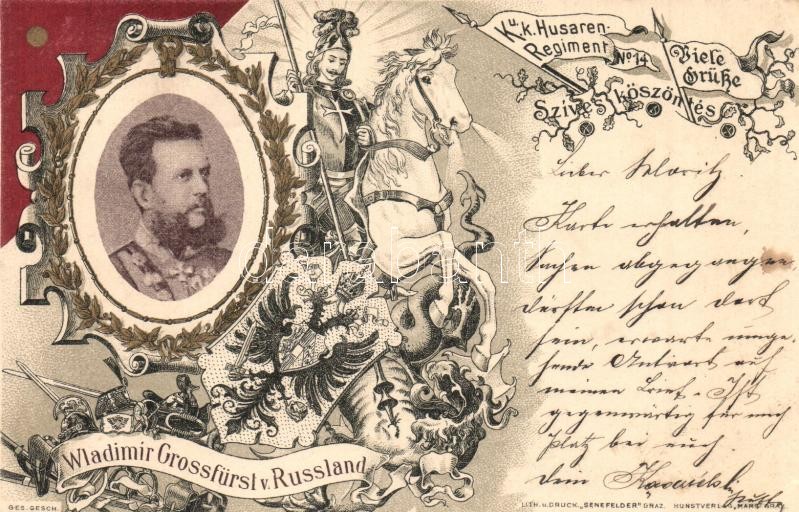 K. u. k. Husaren-
Regiment
No 14
Viele
Grüße
Szives köszöntés
Lieber Moritz
Karte erhalten,
Sachen abgegangen
dürften schon dort
sein, erwarte umge-
hende Antwort auf
meinen Brief. Ist
gegenwärtig für mich
Platz bei euch.
dein
Wladimir Grossfürst v. Russland
GES. GESCH.
LITH. u. DRUCK. „SENEFELDER" GRAZ. KUNSTVERLAG